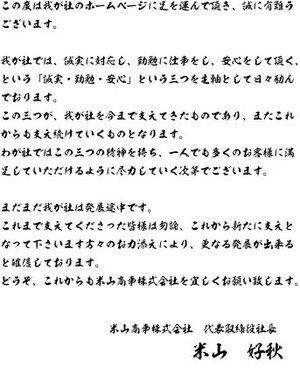 この度は我が社のホームページに足を運んで頂き、誠に有難う
ございます。
我が社では、誠実に対応し、勤勉に仕事をし、安心をして頂く、
という「誠実・勤勉・安心」という三つを主軸として日々励ん
でおります。
この三つが、我が社を今まで支えてきたものであり、またこれ
からも支え続けていくものとなります。
わが社ではこの三つの精神を持ち、一人でも多くのお客様に満
足していただけるように尽力していく次第でございます。
まだまだ我が社は発展途中です。
これまで支えてくださった皆様は勿論、これから新たに支えと
なって下さいます方々のお力添えにより、更なる発展が出来る
と確信しております。
どうぞ、これからも米山商事株式会社を宜しくお願い致します。
米山商事株式会社 代表取締役社長
米山 好秋